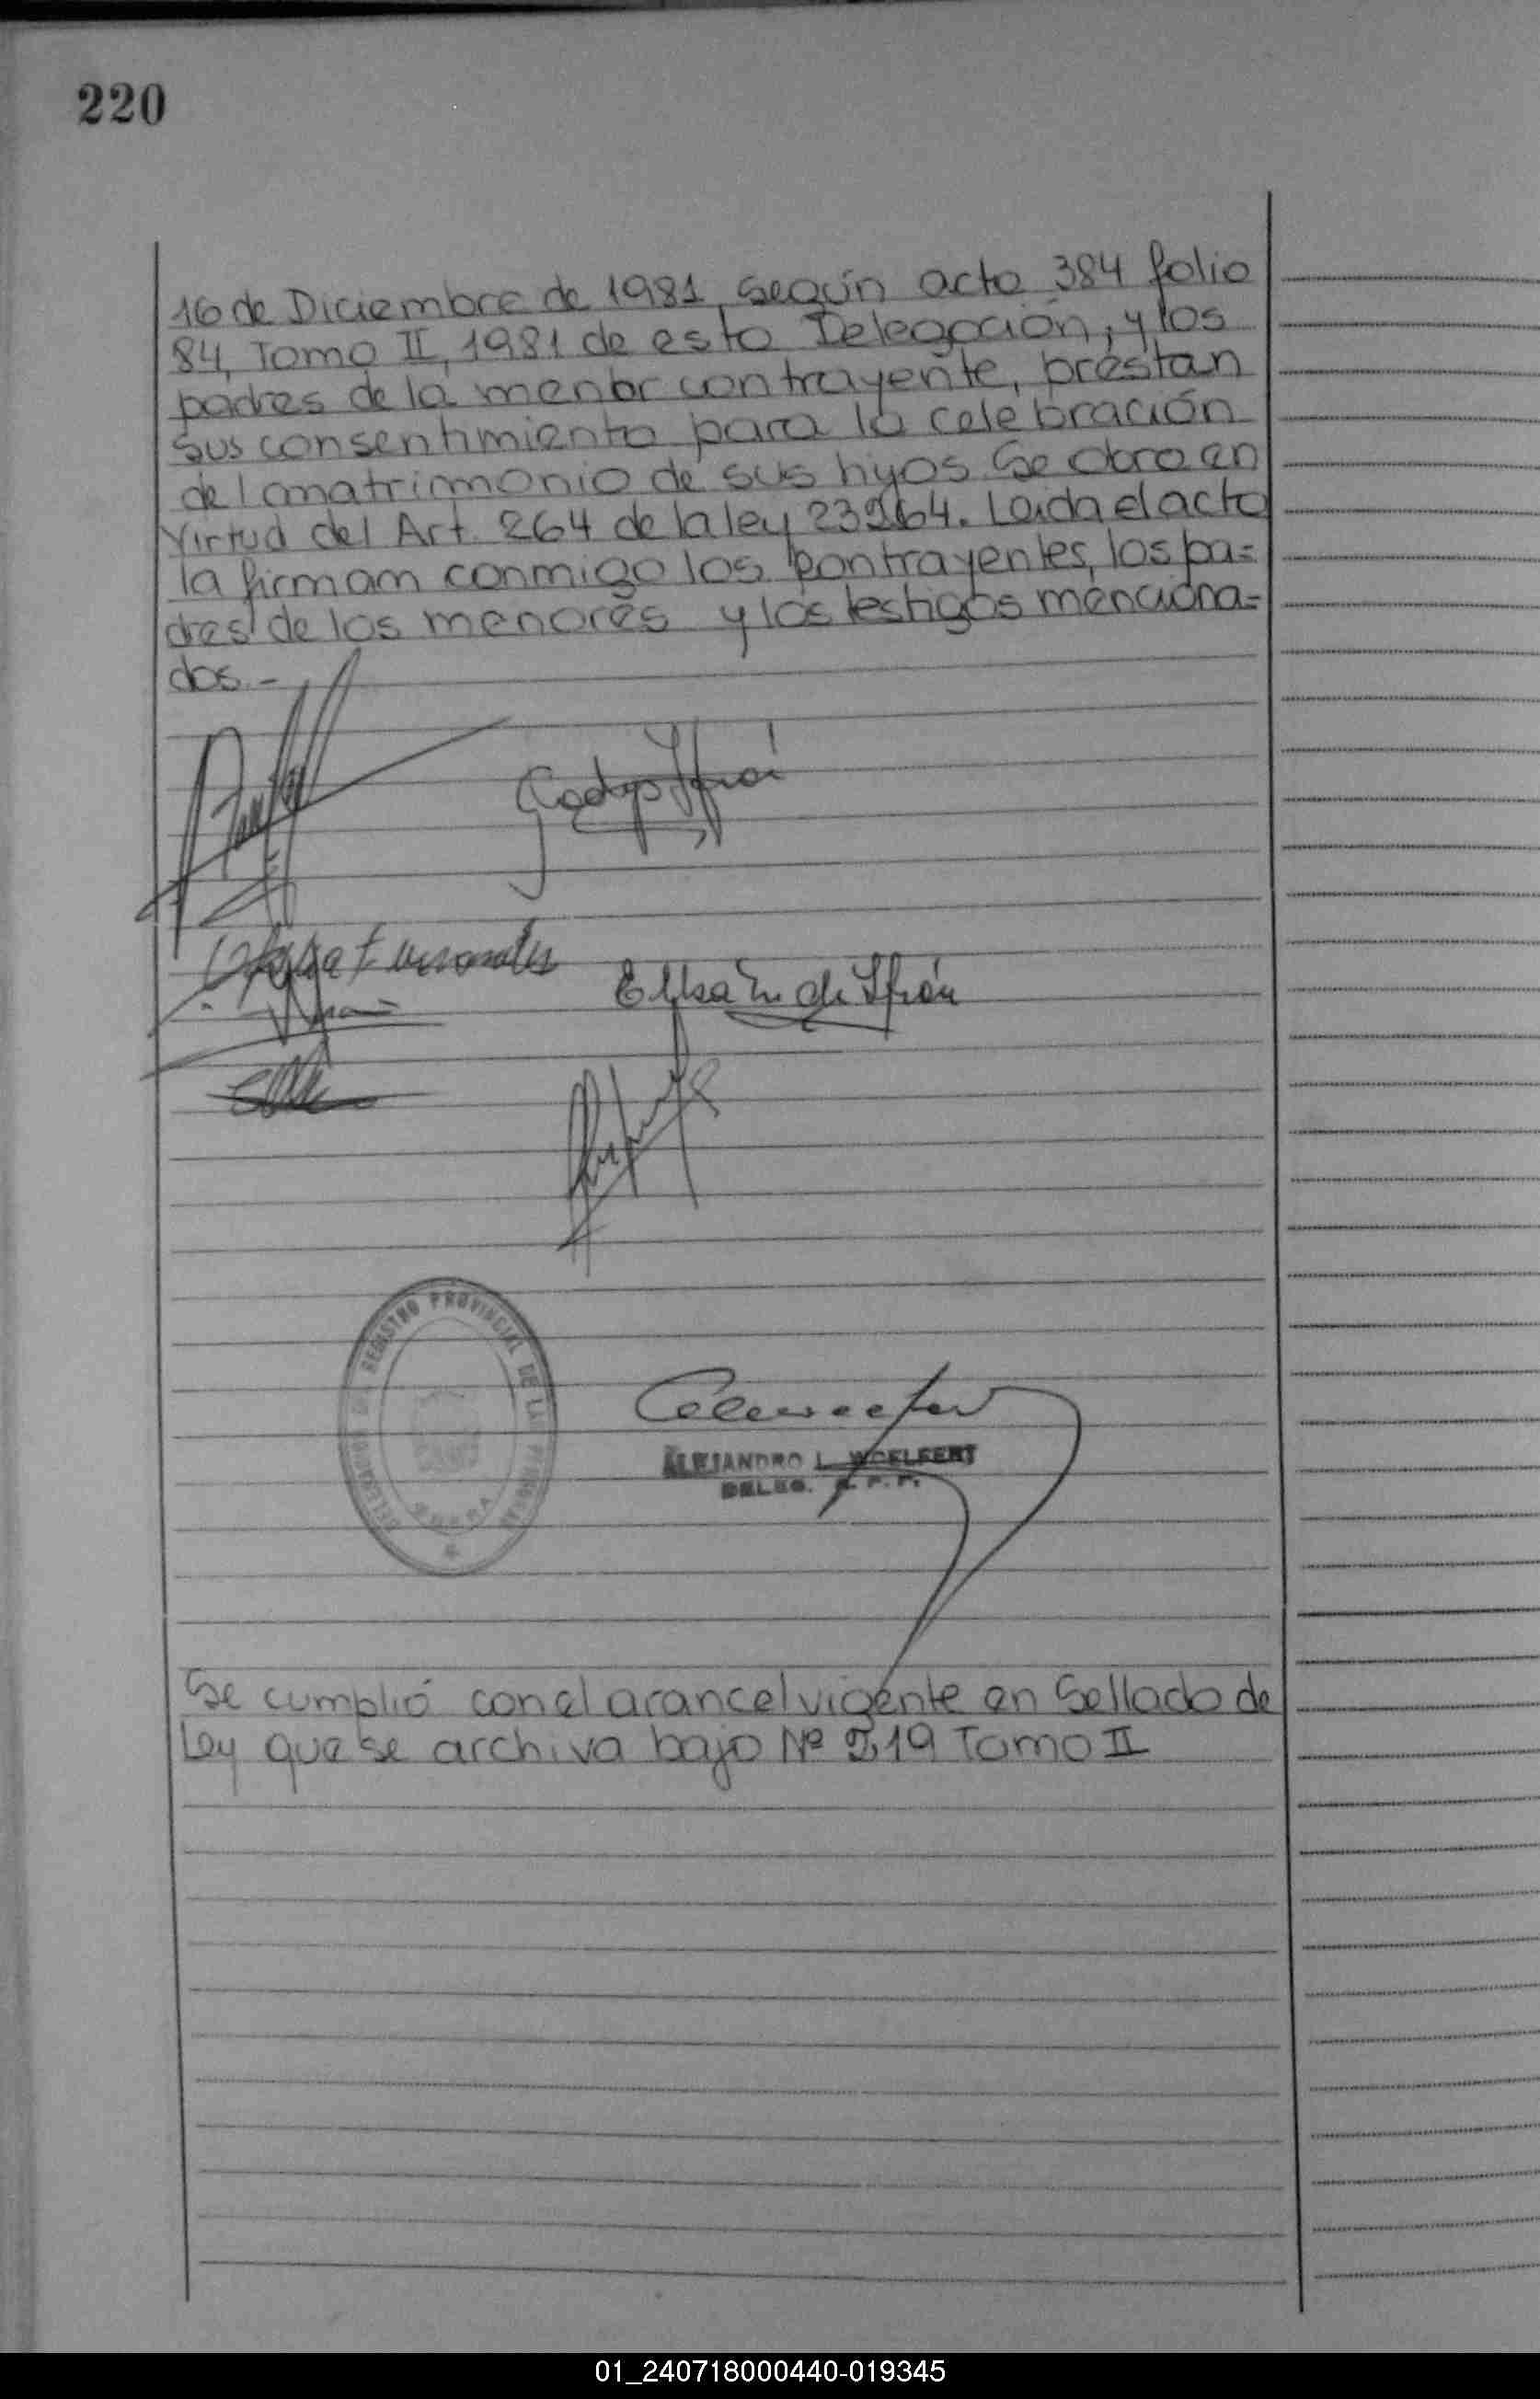 220
16 de Diciembre de 1981, según acta 384 folio
84, Tomo II, 1981 de esta Delegación, y los
padres de la menor contrayente, prestan
sus consentimiento para la celebración
del matrimonio de sus hijos. Se obra en
Virtud del Art. 264 de la ley 23264. Leida el acta
la firmam conmigo los contrayentes, los pa=
dres de los menores y los testigos menciona=
dos.-
Gladys Ifrán
Elsa de Ifrán
REGISTRO PROVINCIAL DE LA
ALEJANDRO L. WOELFERT
DELEG. R. P. P.
Se cumplió con el arancel vigente en Sellado de
Ley que se archiva bajo Nº 219 Tomo II
01_240718000440-019345